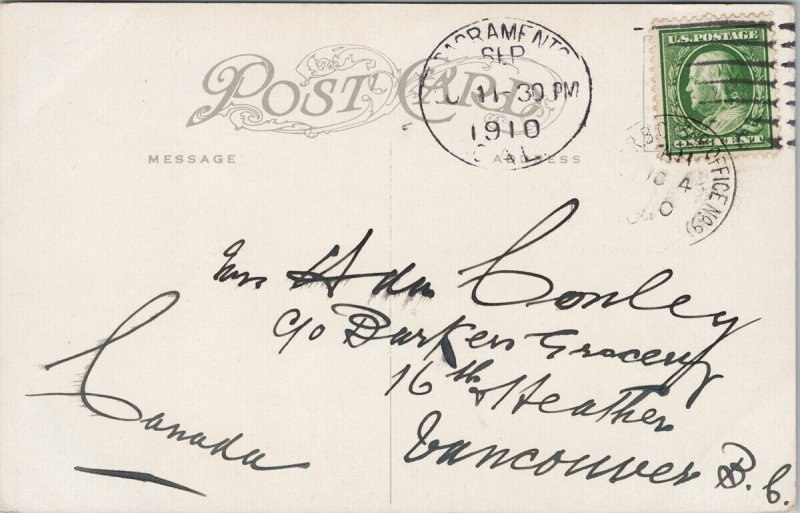 POST CARD
MESSAGE
ADDRESS
SACRAMENTO
SEP
11-30 PM
1910
CAL.
U.S. POSTAGE
ONE CENT
OFFICE No. 9
Mrs Conley
c/o Barkers Grocery
16th & Heather
Vancouver B.C.
Canada